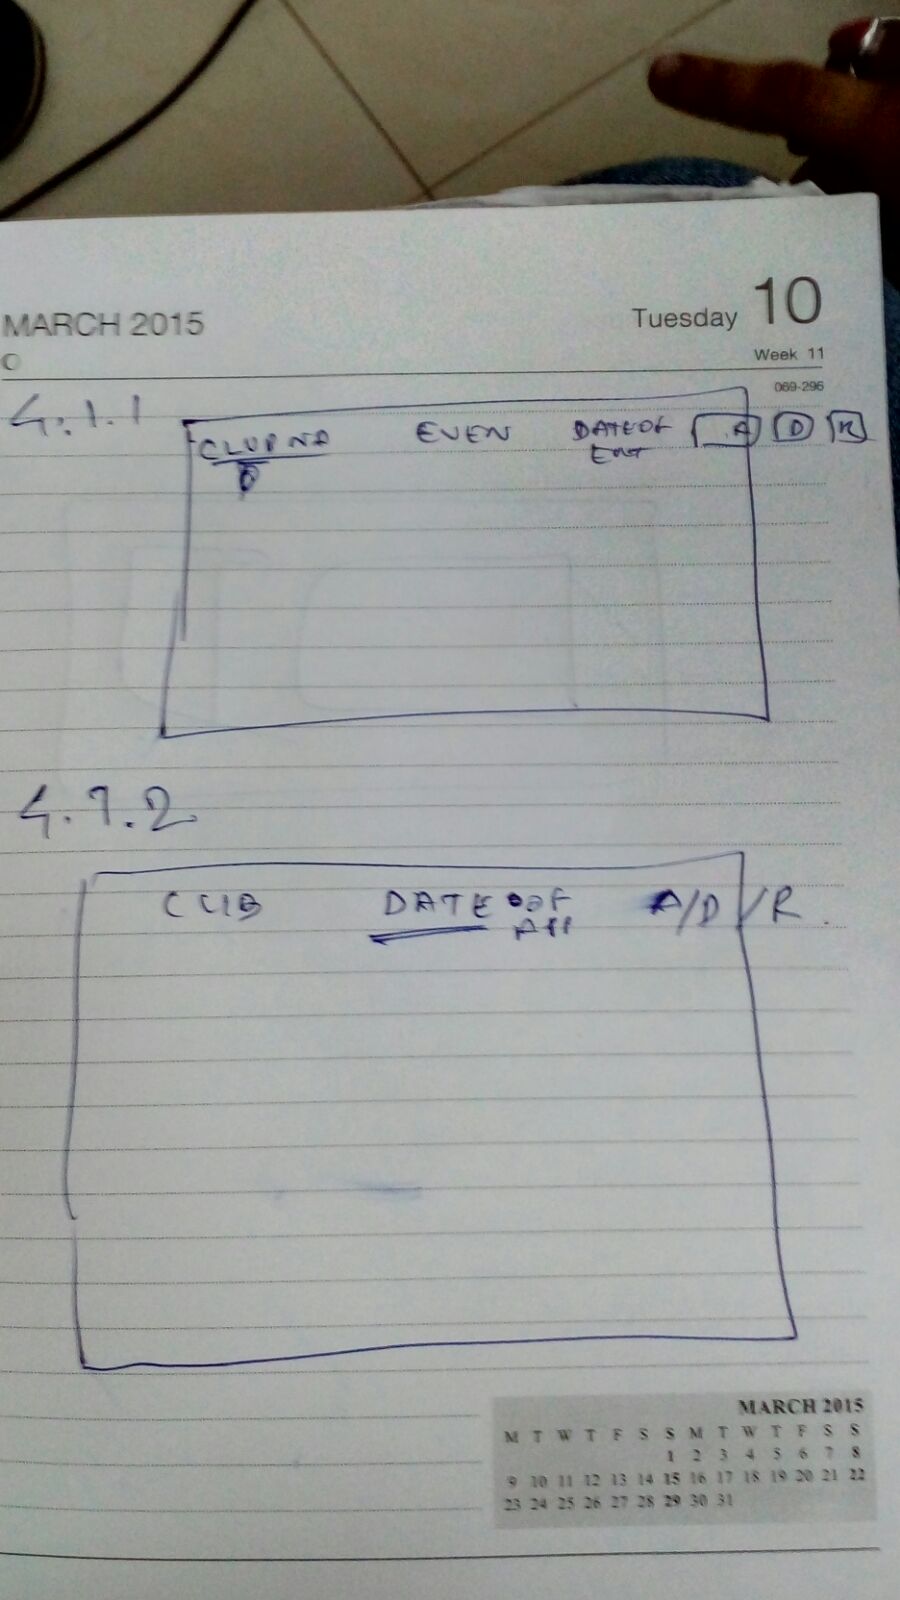 MARCH 2015
Tuesday 10
Week 11
069-296
4.1.1
EVEN DATE OF A D R
4.1.2
CLUB DATE OF A/D/R.
APP
MARCH 2015
M T W T F S S M T W T F S S
1 2 3 4 5 6 7 8
9 10 11 12 13 14 15 16 17 18 19 20 21 22
23 24 25 26 27 28 29 30 31